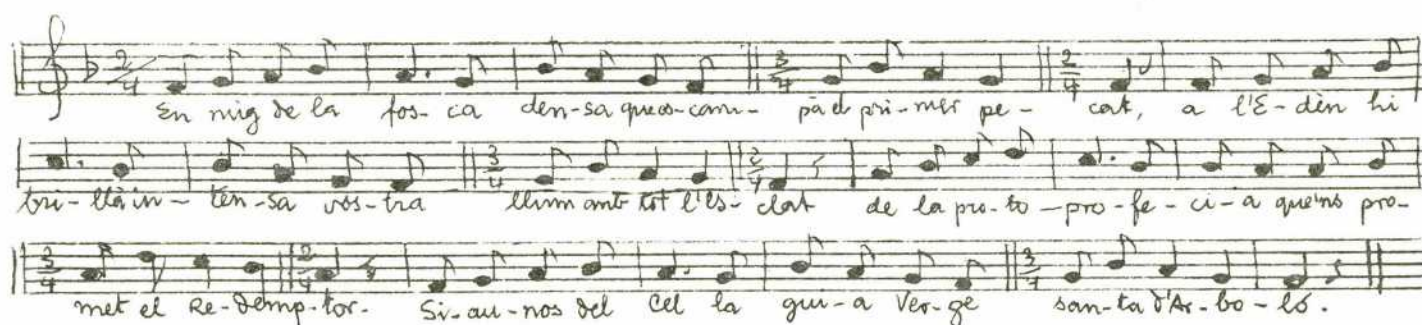 En mig de la fos-ca den-sa que es-cam- pà el pri-mer pe- cat, a l'E-dèn hi
bri-llà in- ten-sa vos-tra llum amb tot l'es- clat de la pro-to-pro-fe-ci-a que'ns pro-
met el Re-demp-tor. Si-au-nos del Cel la gui-a Ver-ge san-ta d'Ar-bo-ló.